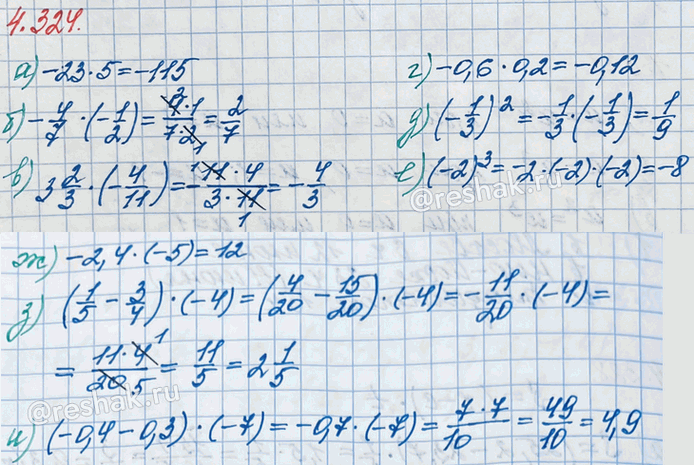 4.324.
а) -23·5=-115
б) -4/7·(-1/2)=4·1/7·2=2/7
в) 3 2/3·(-4/11)=-11·4/3·11=-4/3
г) -0,6·0,2=-0,12
д) (-1/3)²=-1/3·(-1/3)=1/9
е) (-2)³=-2·(-2)·(-2)=-8
@reshak.ru
ж) -2,4·(-5)=12
з) (1/5-3/4)·(-4)=(4/20-15/20)·(-4)=-11/20·(-4)=
=11·4/20=11/5=2 1/5
@reshak.ru
и) (-0,4-0,3)·(-7)=-0,7·(-7)=7·7/10=49/10=4,9